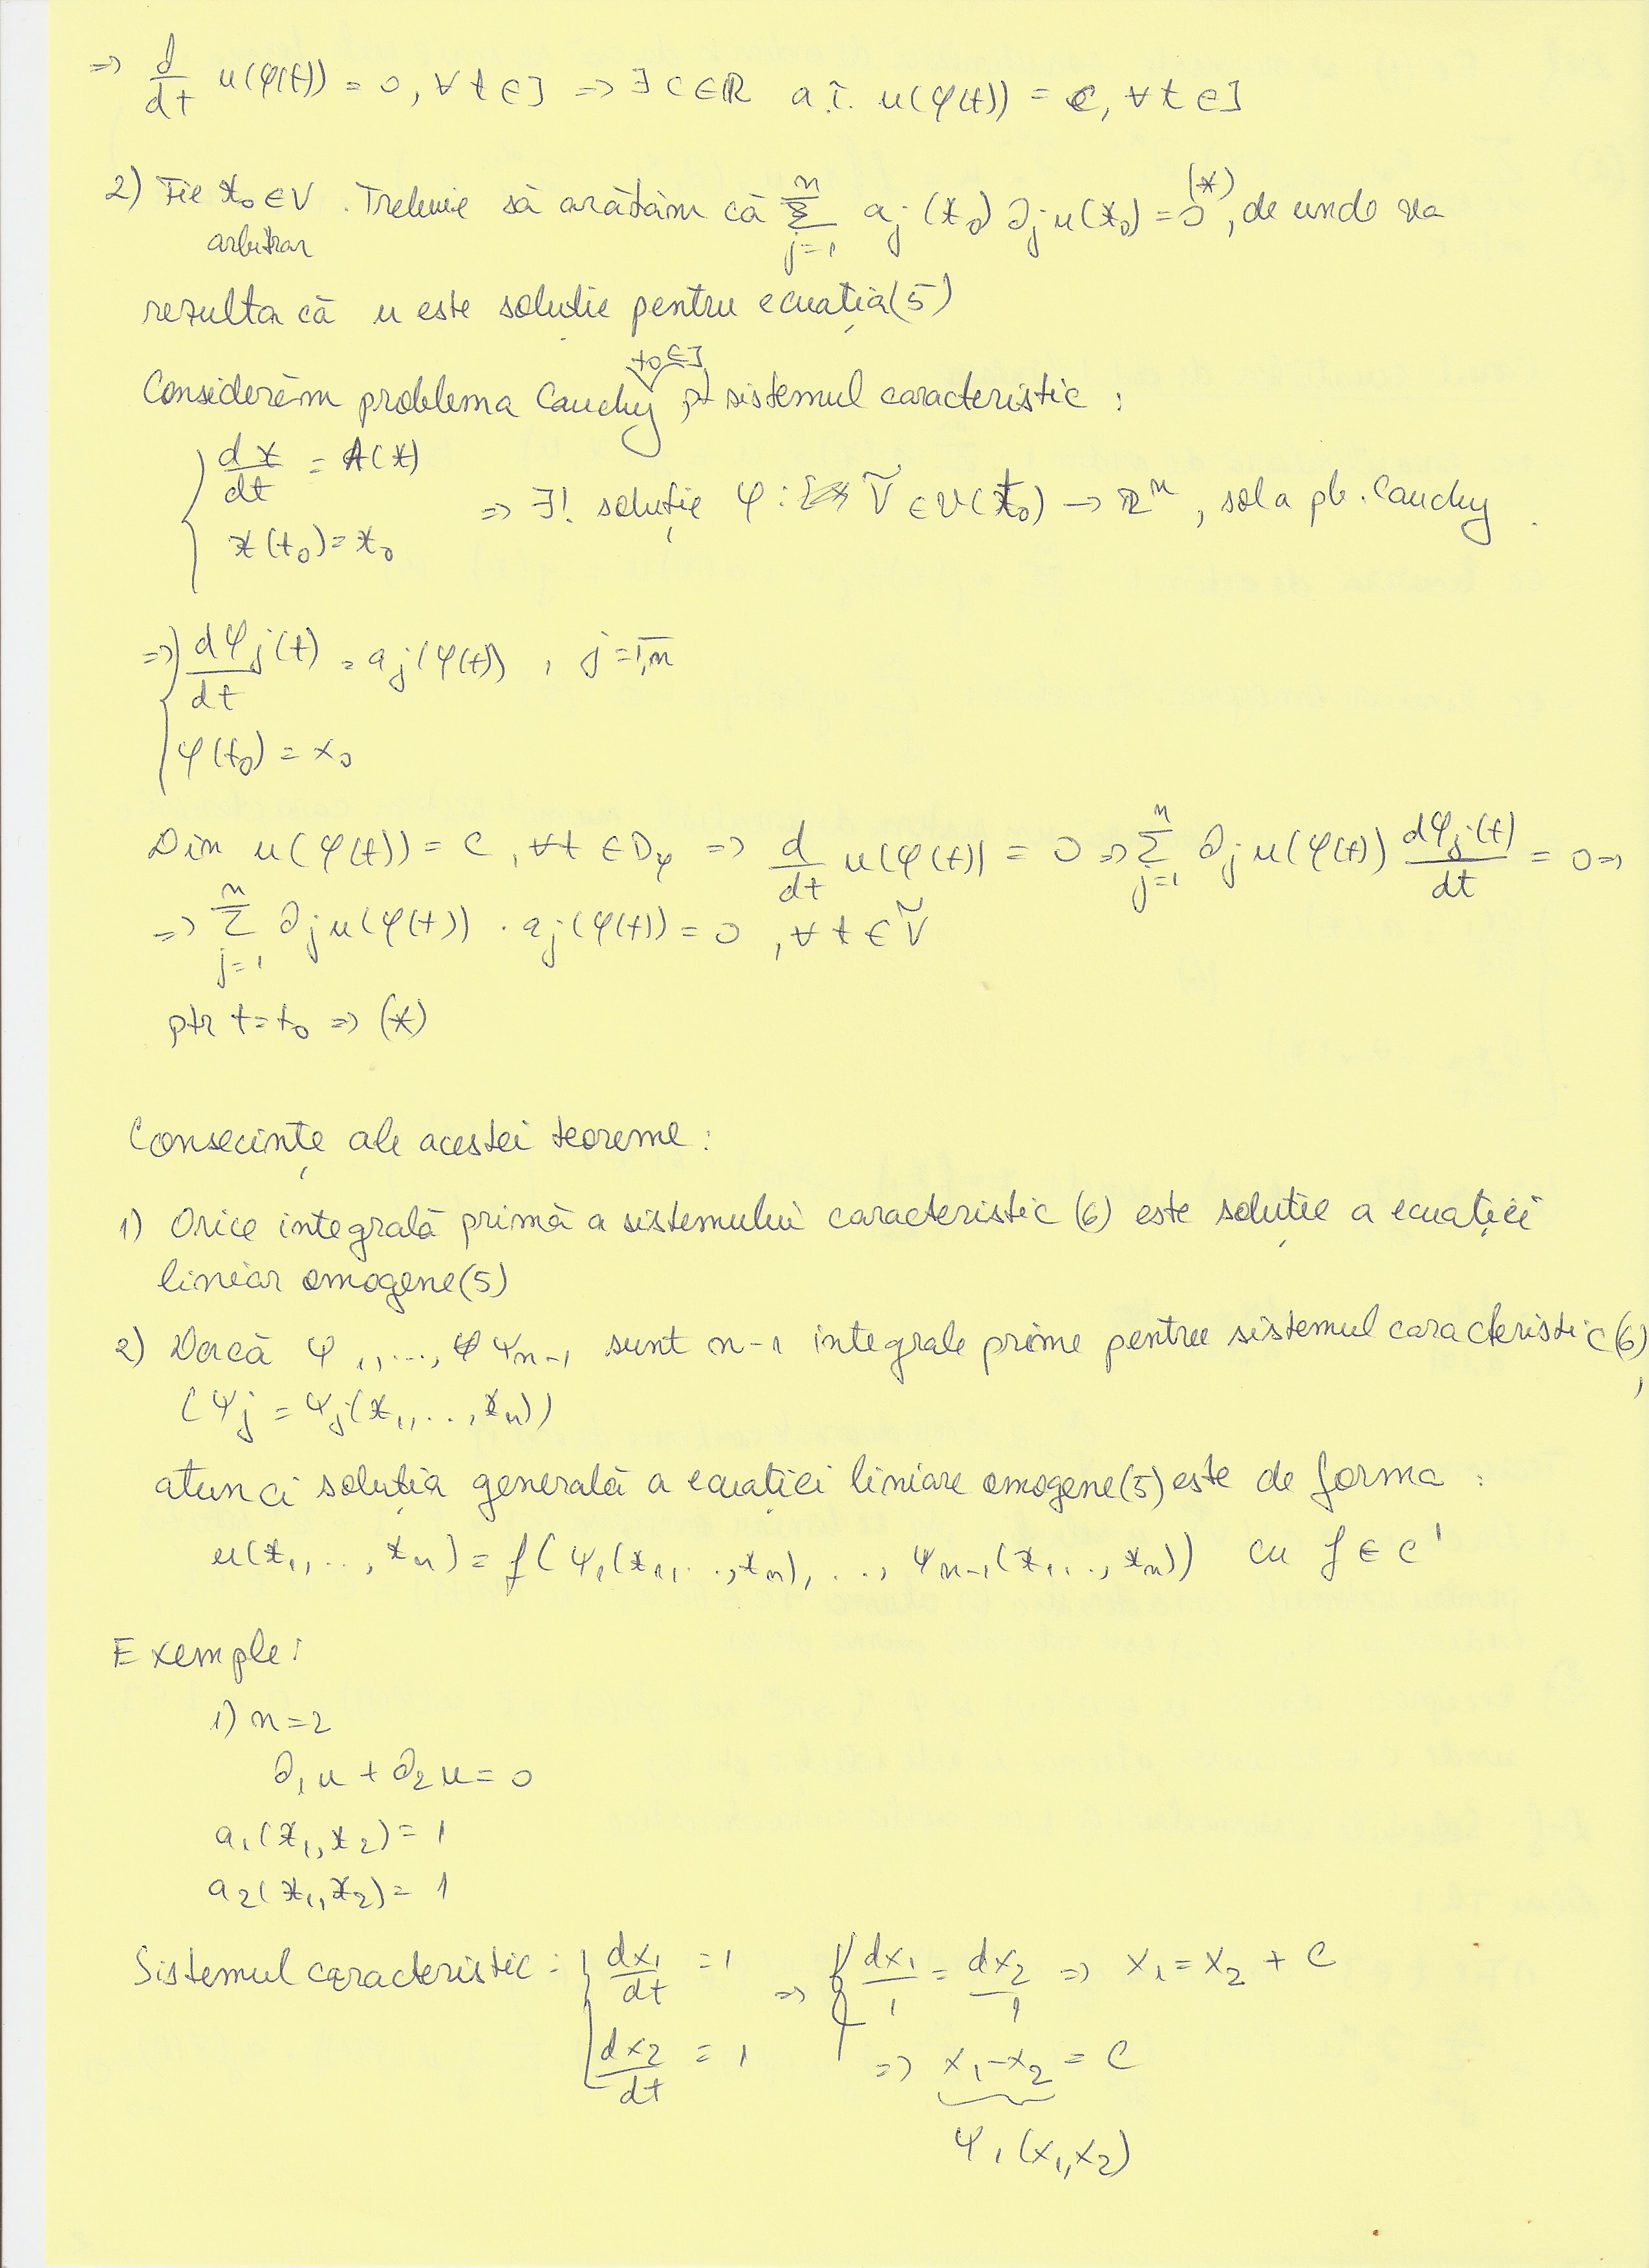 => d/dt u(φ(t)) = 0, ∀ t ∈ J => ∃ C ∈ ℝ a.î. u(φ(t)) = C, ∀ t ∈ J
2) Fie x₀ ∈ V arbitrar. Trebuie să arătăm că Σ_{j=1}^{n} a_j(x₀) ∂_j u(x₀) = 0 (*), de unde va
rezulta că u este soluție pentru ecuația (5)
Considerăm problema Cauchy t₀∈J pt sistemul caracteristic :
{ dx/dt = A(x)
x(t₀) = x₀ => ∃! soluție φ : Ṽ ∈ V(t₀) → ℝⁿ, sol a pb. Cauchy.
=> { dφ_j(t)/dt = a_j(φ(t)), j = 1,n
φ(t₀) = x₀
Din u(φ(t)) = C, ∀ t ∈ D_φ => d/dt u(φ(t)) = 0 => Σ_{j=1}^{n} ∂_j u(φ(t)) dφ_j(t)/dt = 0 =>
=> Σ_{j=1}^{n} ∂_j u(φ(t)) · a_j(φ(t)) = 0, ∀ t ∈ Ṽ
ptr t = t₀ => (*)
Consecințe ale acestei teoreme :
1) Orice integrală primă a sistemului caracteristic (6) este soluție a ecuației
liniar omogene (5)
2) Dacă ψ₁, ..., ψ_{n-1} sunt n-1 integrale prime pentru sistemul caracteristic (6),
(ψ_j = ψ_j(x₁, .., x_n))
atunci soluția generală a ecuației liniare omogene (5) este de forma :
u(x₁, .., x_n) = f(ψ₁(x₁, .., x_n), ..., ψ_{n-1}(x₁, .., x_n)) cu f ∈ C¹
Exemple:
1) n=2
∂₁u + ∂₂u = 0
a₁(x₁, x₂) = 1
a₂(x₁, x₂) = 1
Sistemul caracteristic : { dx₁/dt = 1 => dx₁/1 = dx₂/1 => x₁ = x₂ + C
dx₂/dt = 1 => x₁ - x₂ = C
ψ₁(x₁, x₂)